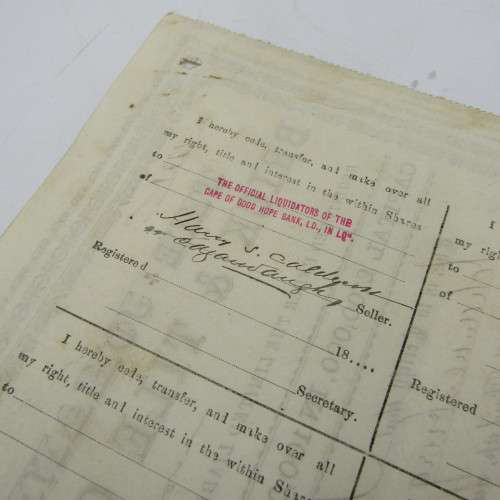 I hereby cede, transfer, and make over all
my right, title and interest in the within Shares
to
THE OFFICIAL LIQUIDATORS OF THE
of
CAPE OF GOOD HOPE BANK, LD., IN LQN.
Harry S. Caldecott
Seller.
Registered
18....
Secretary.
I hereby cede, transfer, and make over all
my right, title and interest in the within Shares
to
I
my right
to
of
Registered